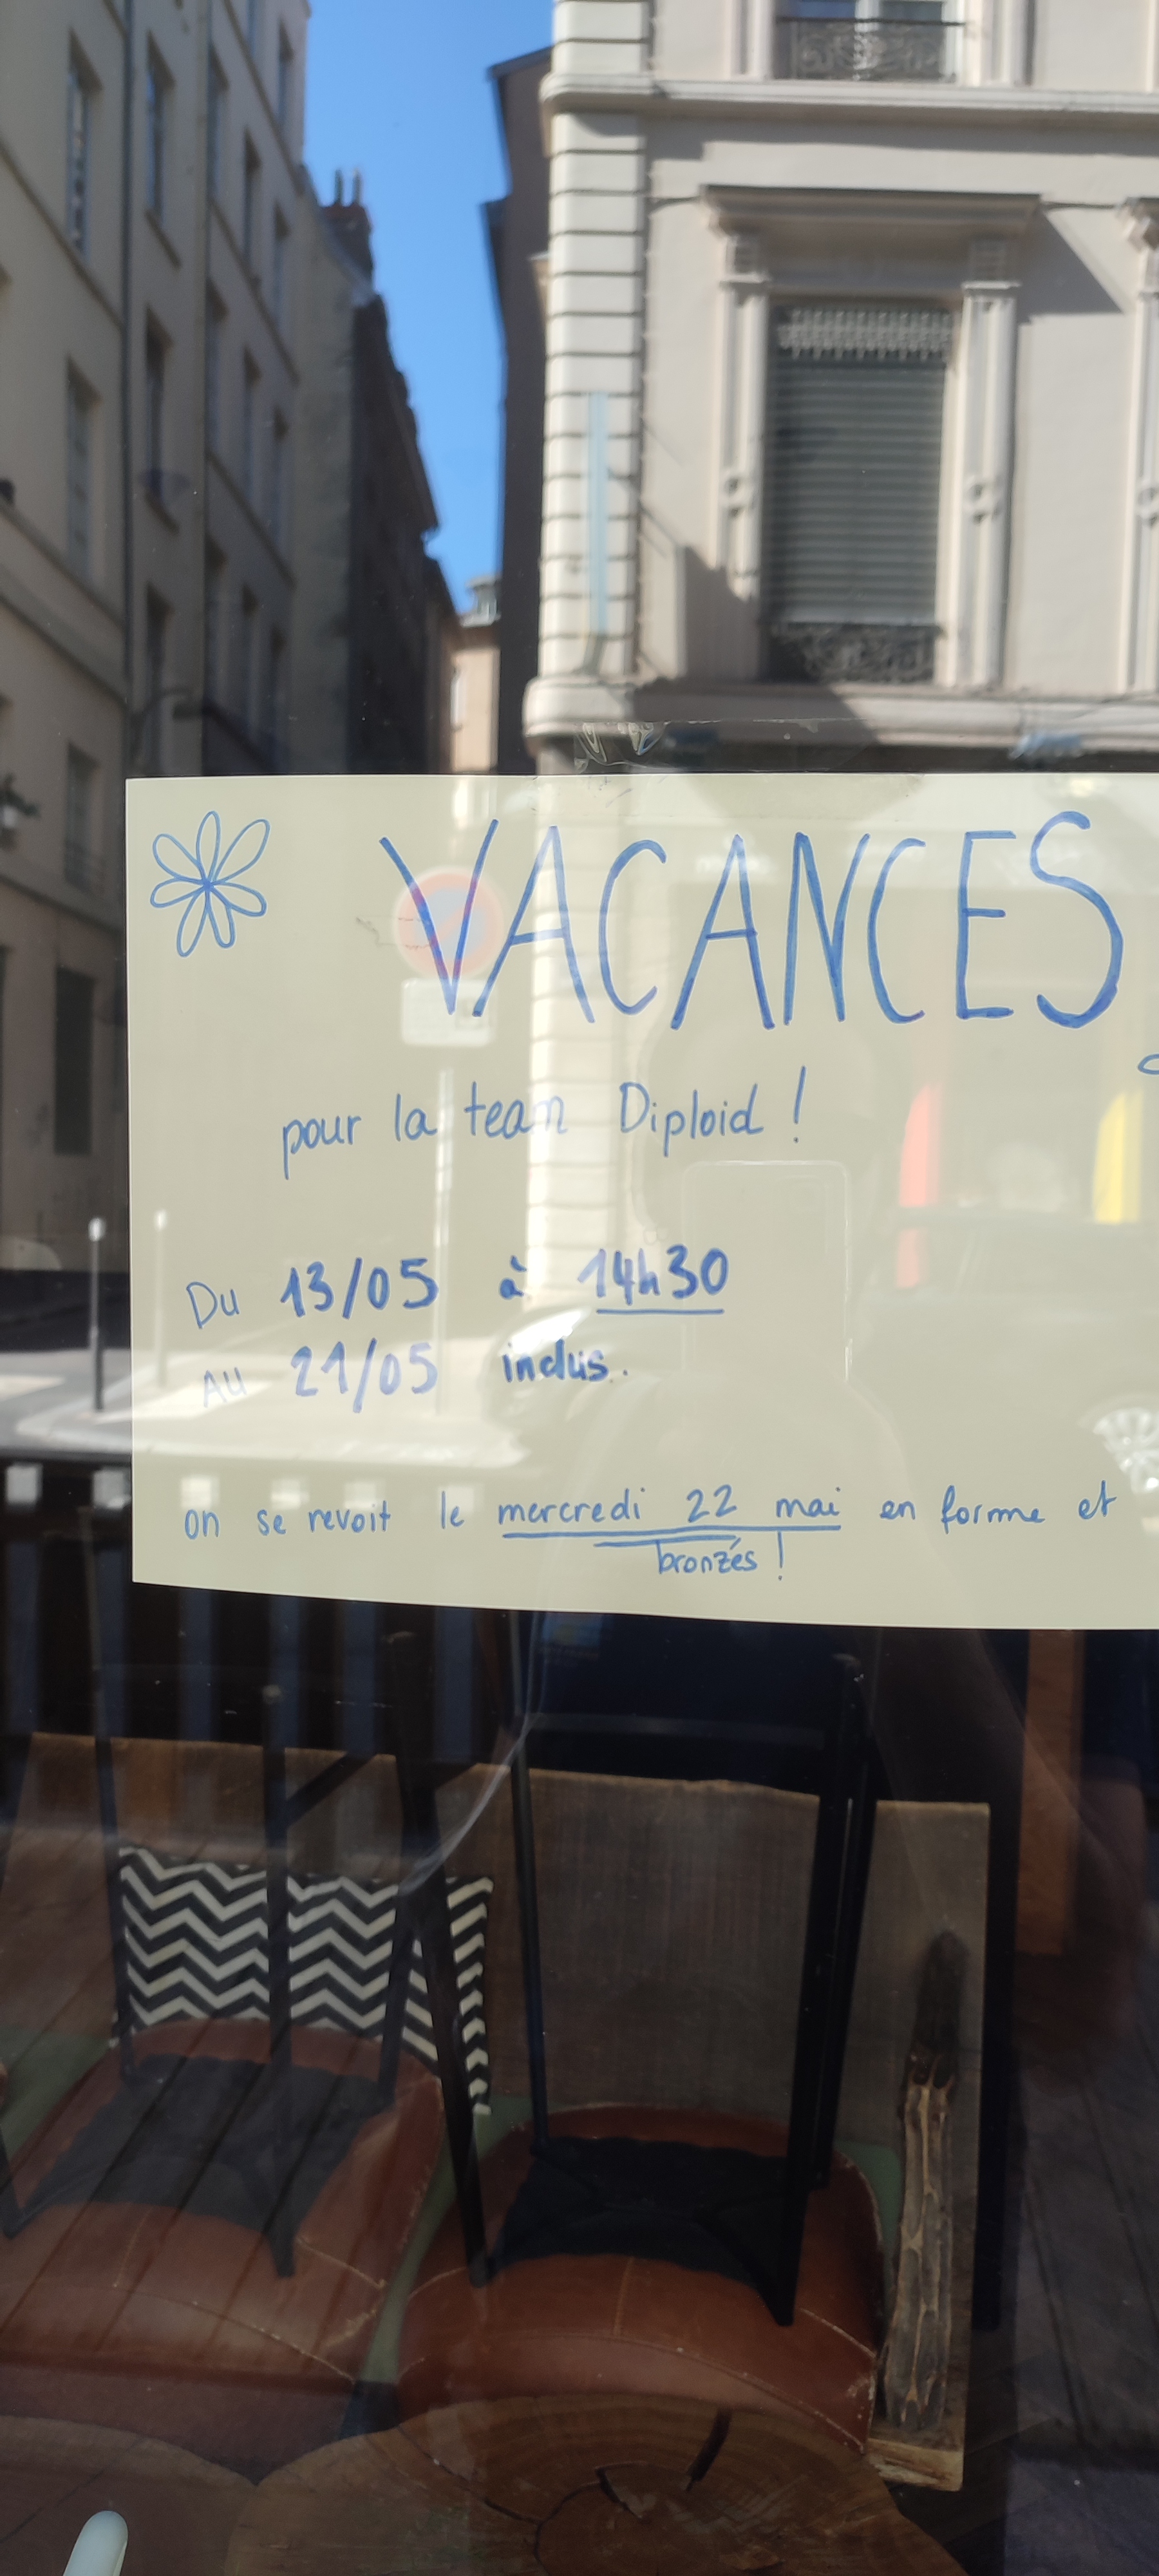 VACANCES
pour la team Diploid !
Du 13/05 à 14h30
Au 21/05 inclus.
on se revoit le mercredi 22 mai en forme et
bronzés !